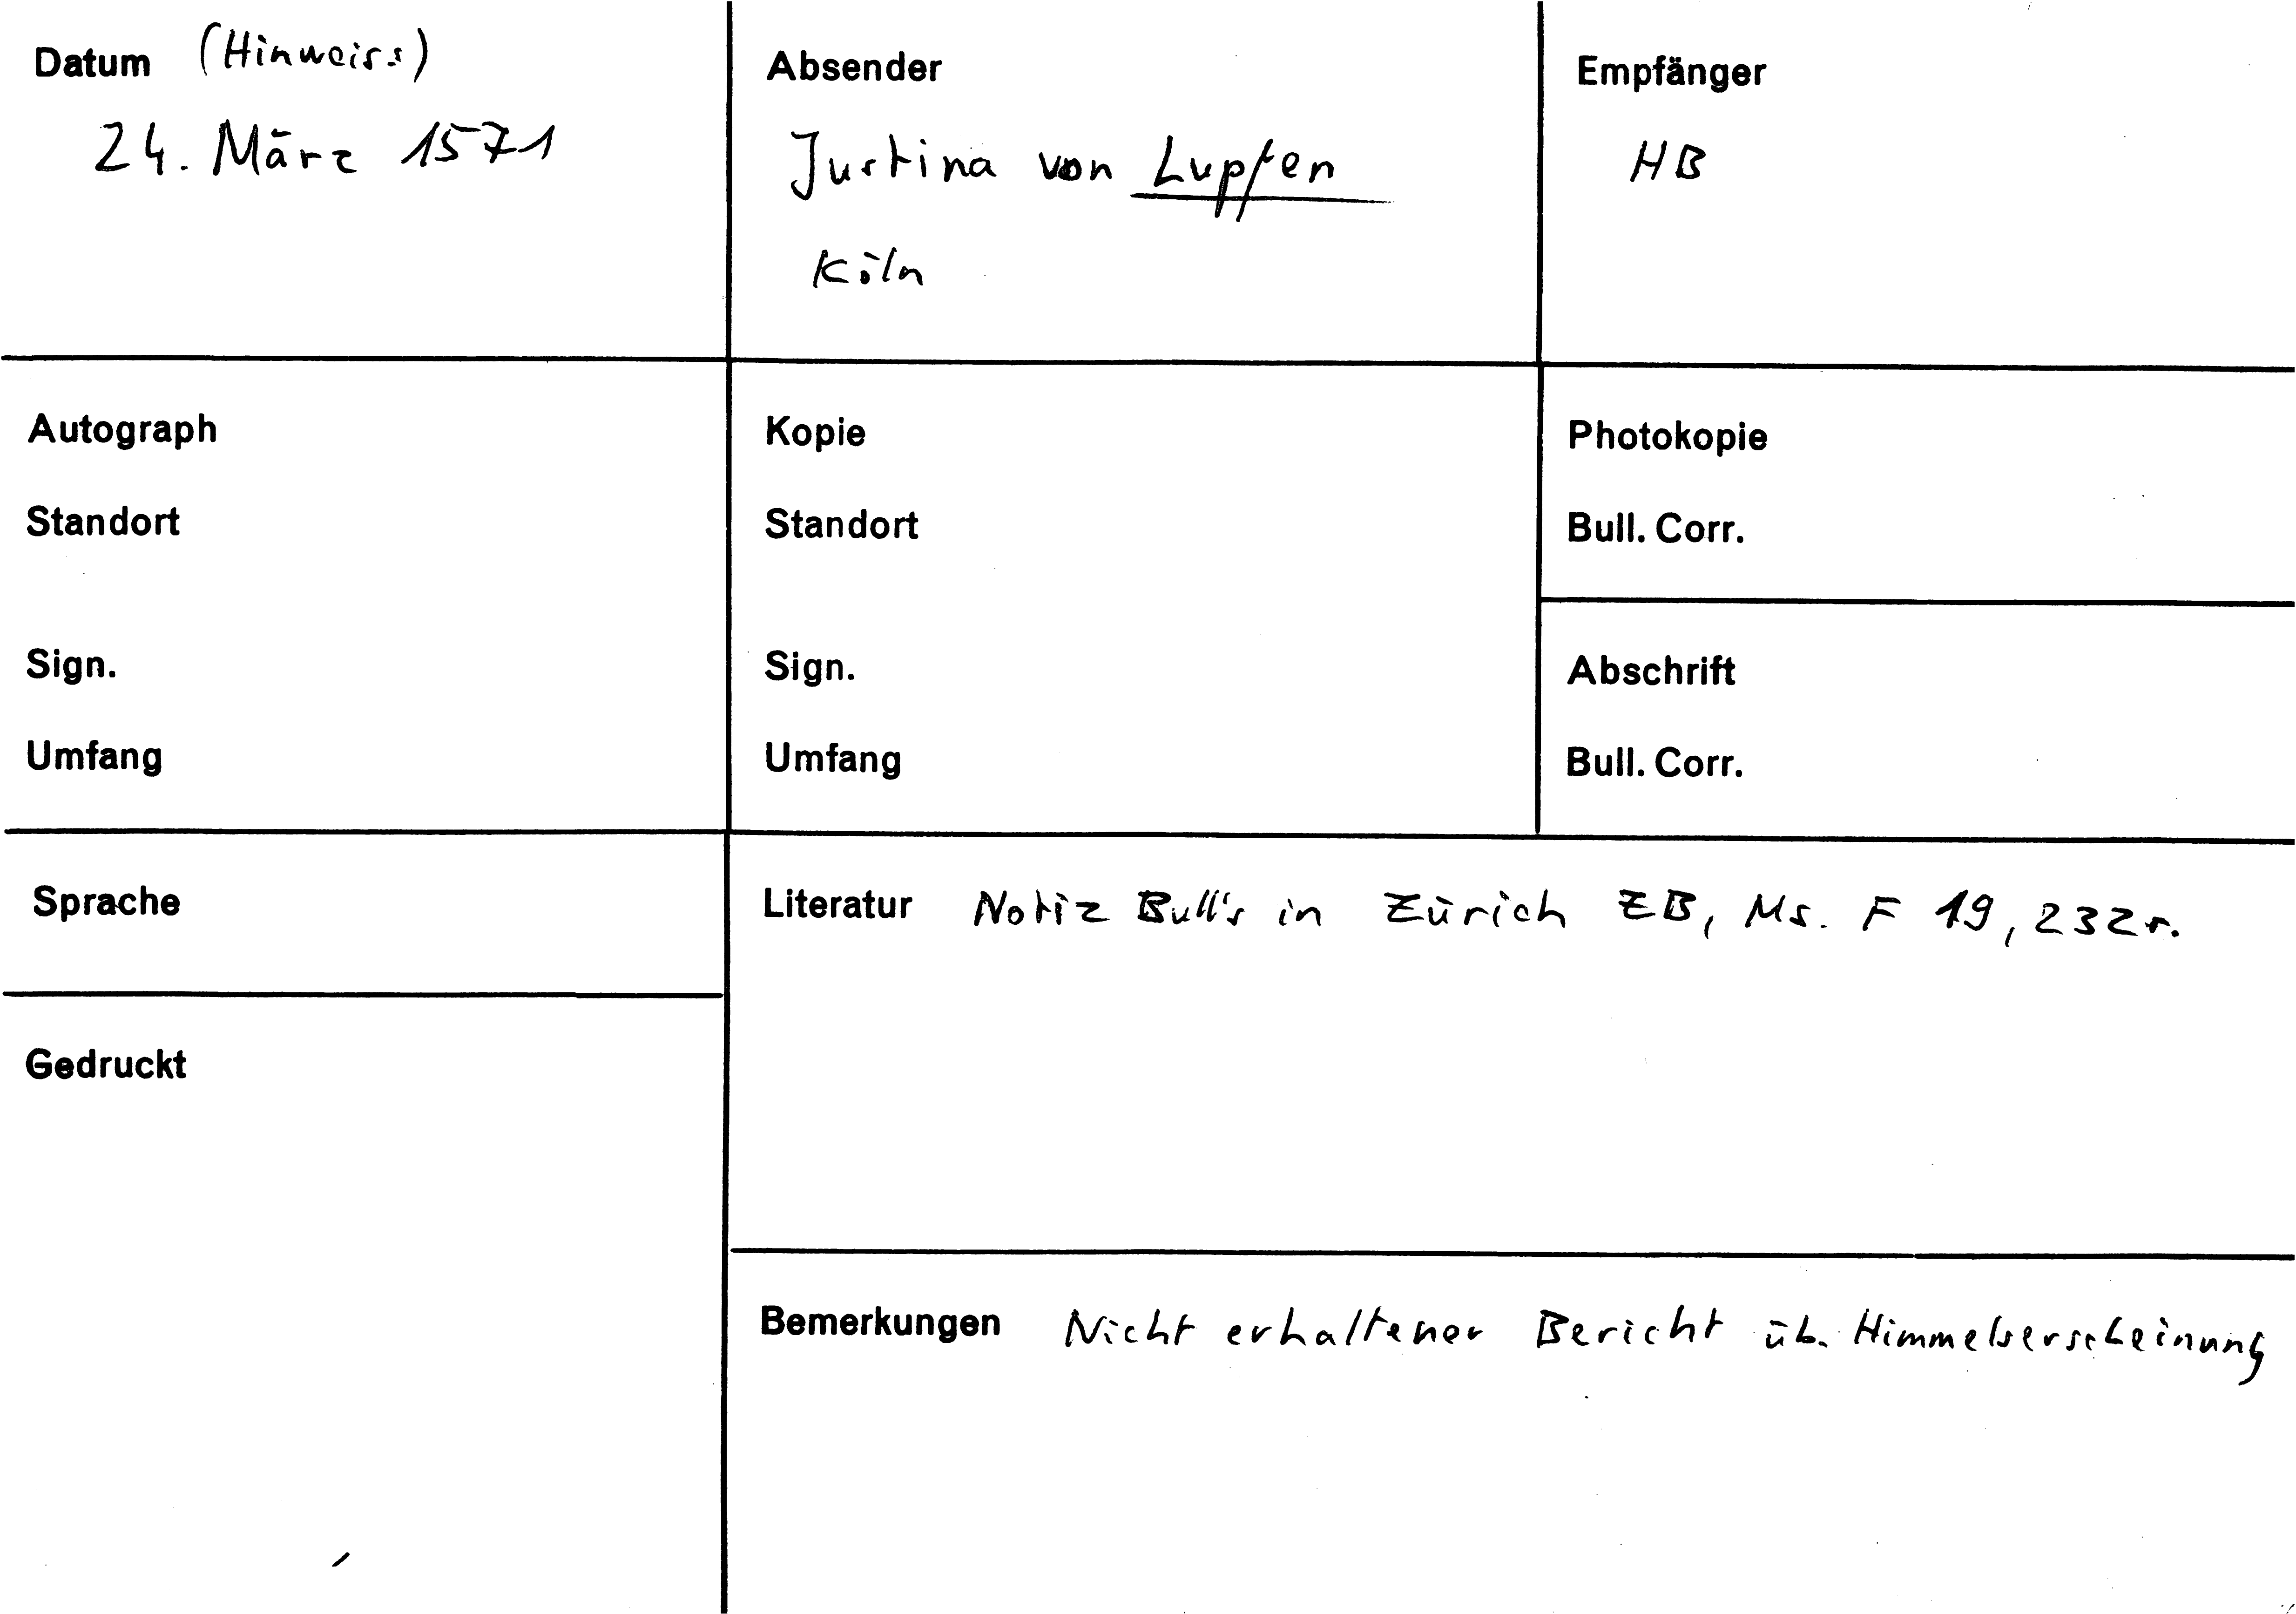 Datum (Hinweis:)
24. März 1571
Absender
Justina von Lupfen
Köln
Empfänger
HB
Autograph
Standort
Sign.
Umfang
Kopie
Standort
Sign.
Umfang
Photokopie
Bull. Corr.
Abschrift
Bull. Corr.
Sprache
Gedruckt
Literatur Notiz Bull's in Zürich ZB, Ms. F 19, 232r.
Bemerkungen Nicht erhaltener Bericht üb. Himmelserscheinung